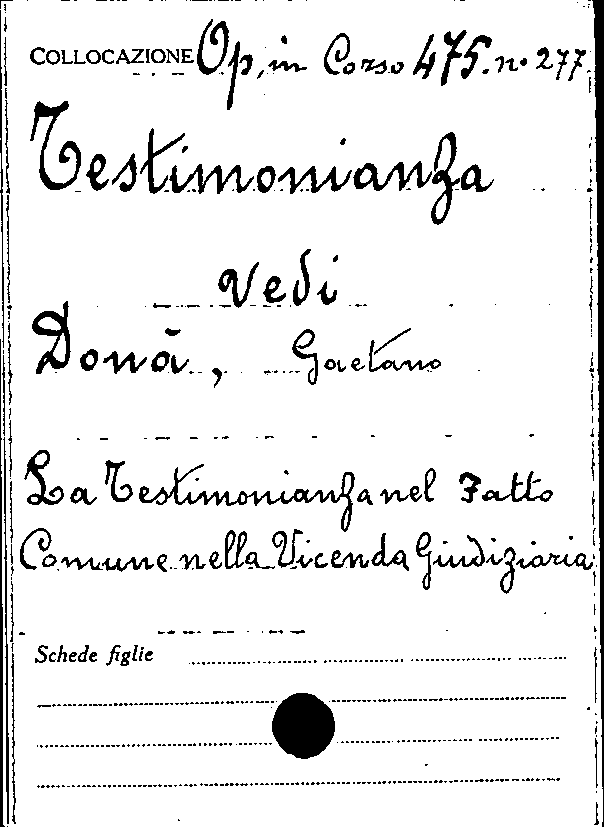 COLLOCAZIONE Op. in Corso 475. n. 277.
Testimonianza
vedi
Donā, Gaetano
La Testimonianza nel Fatto
Comune nella Vicenda Giudiziaria
Schede figlie